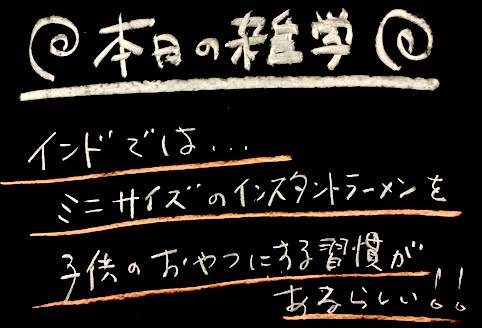 本日の雑学
インドでは...
ミニサイズのインスタントラーメンを
子供のおやつにする習慣が
あるらしい!!